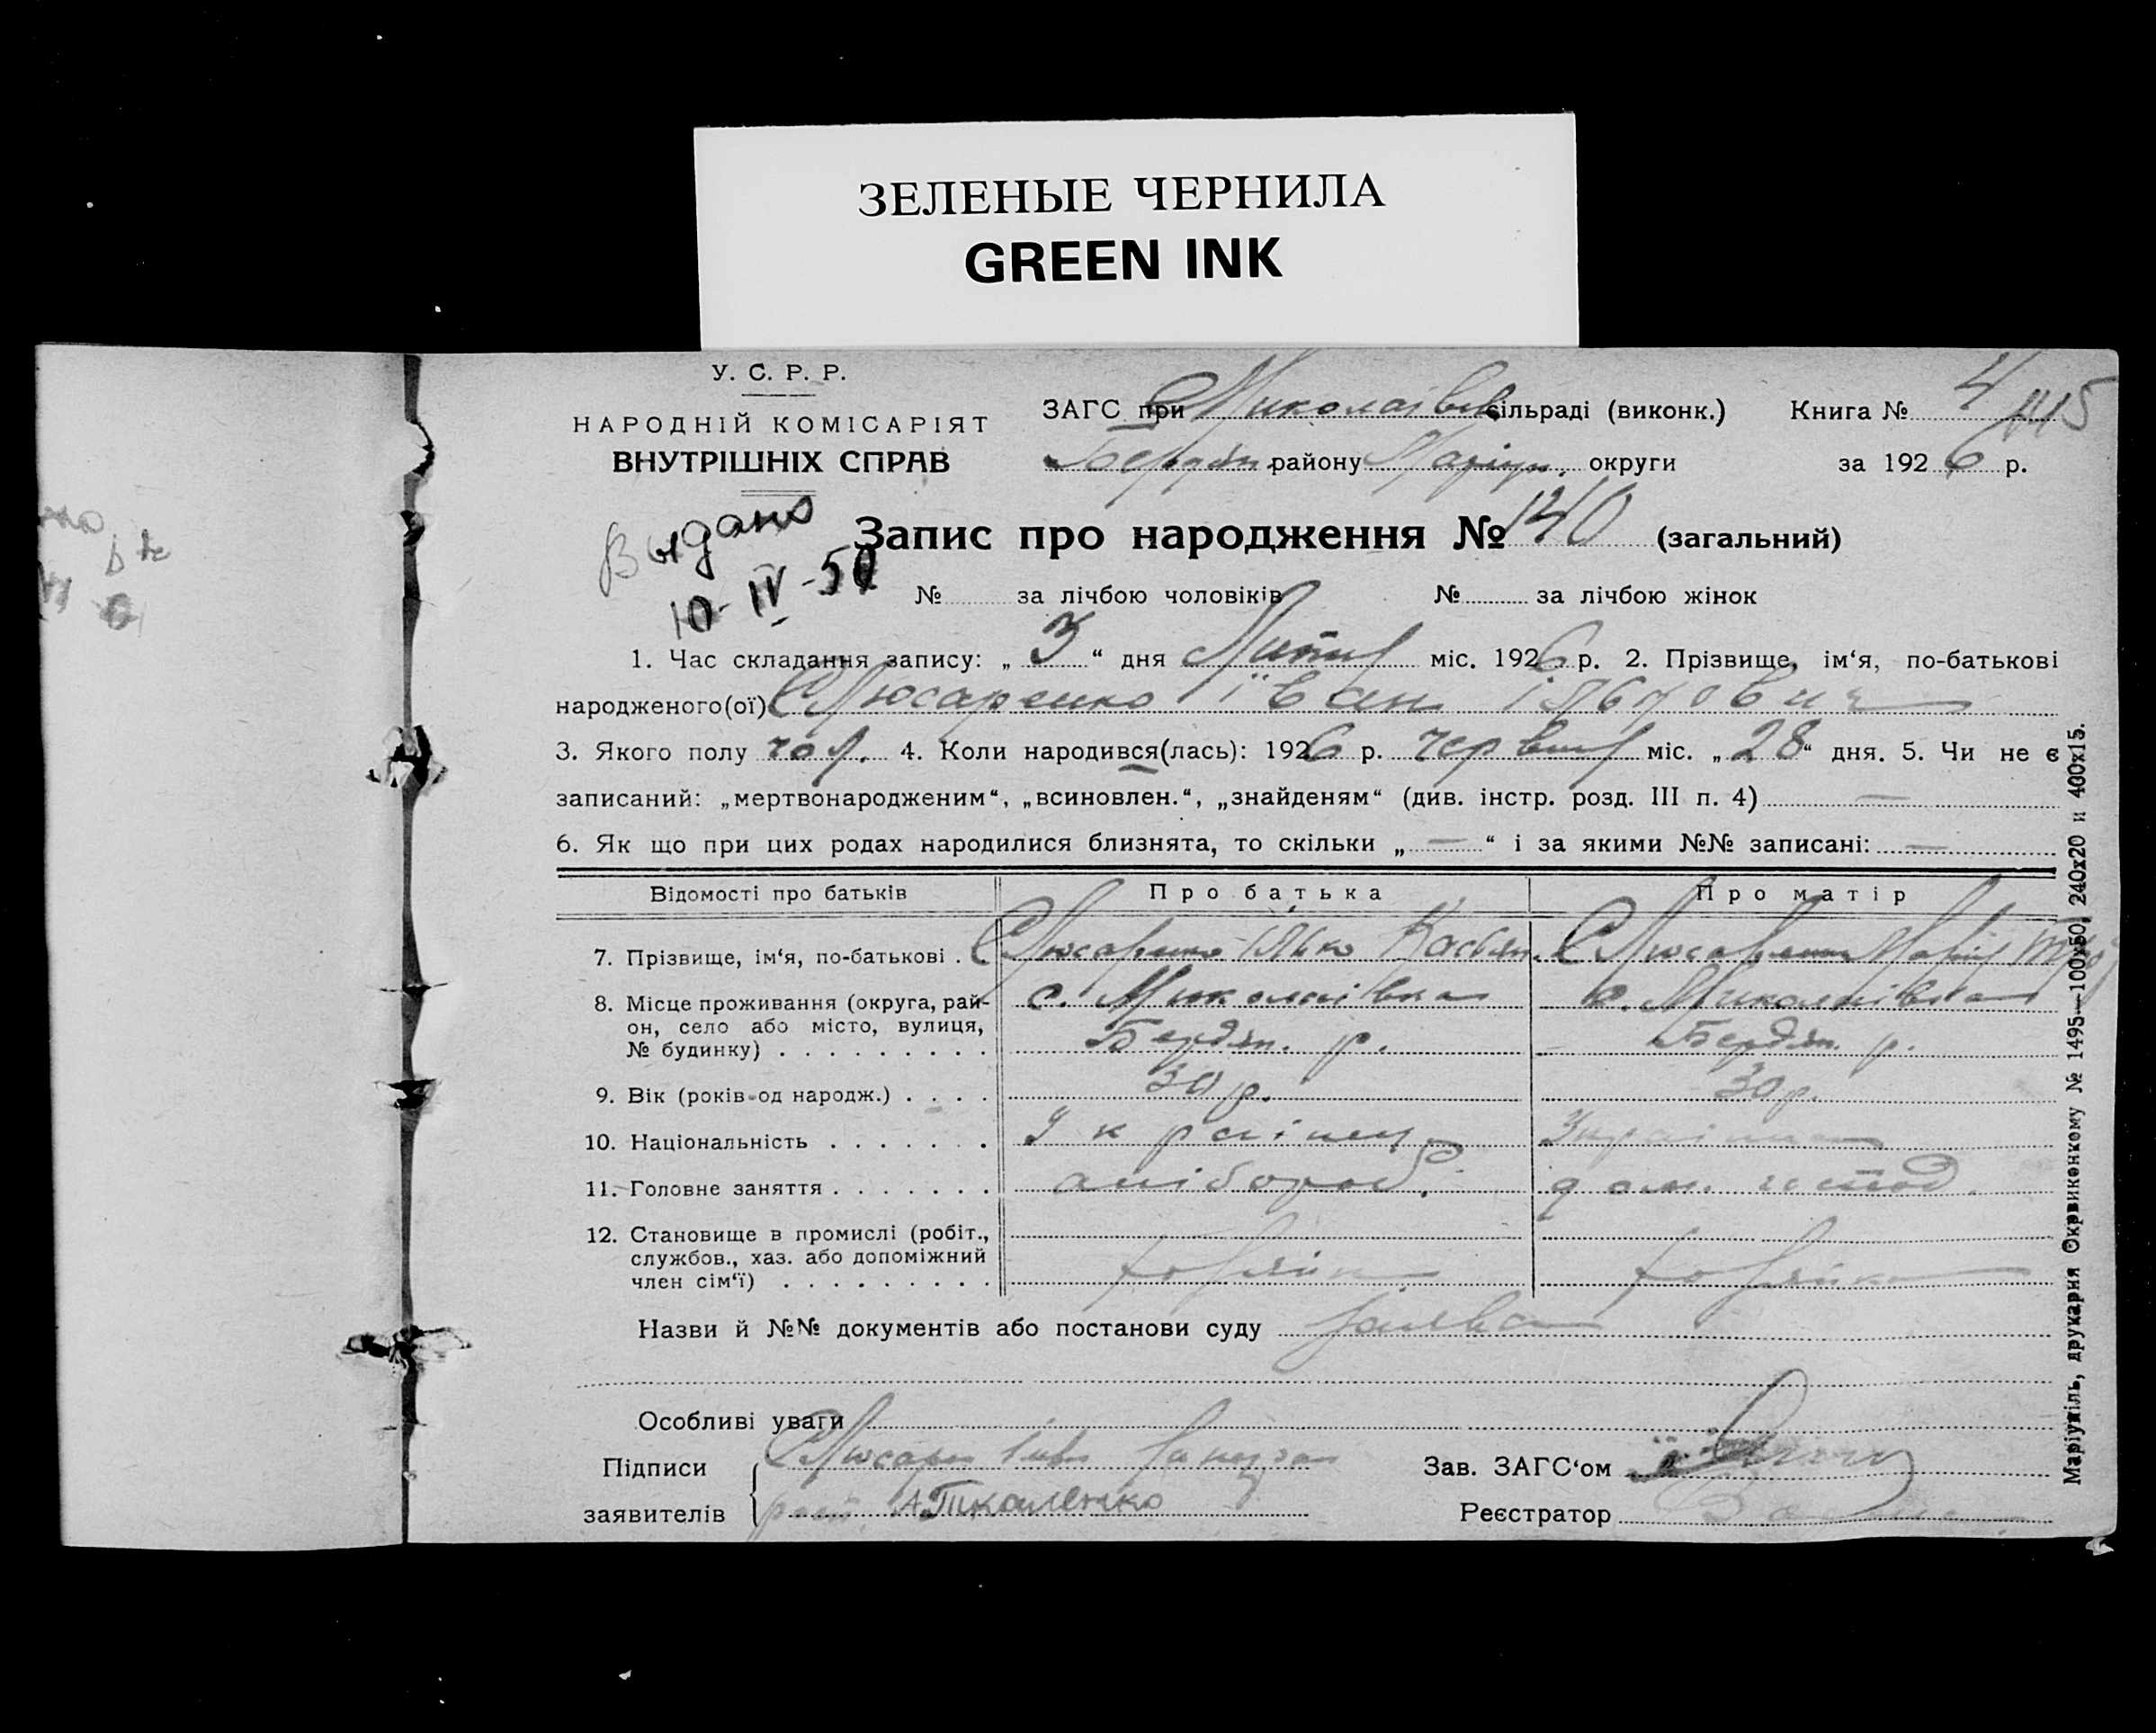 ЗЕЛЕНЫЕ ЧЕРНИЛА
GREEN INK
У. С. Р. Р.
НАРОДНІЙ КОМІСАРІЯТ
ВНУТРІШНІХ СПРАВ
ЗАГС при Миколаївск сільраді (виконк.) Книга № 4
Бердян. району Маріуп. округи за 1926 р.
Выдано
10-IV-50
Запис про народження № 140 (загальний)
№ за лічбою чоловіків № за лічбою жінок
1. Час складання запису: „ 3 “ дня Липня міс. 1926 р. 2. Прізвище, ім‘я, по-батькові
народженого(ої) Слюсаренко Іван
3. Якого полу чол. 4. Коли народився(лась): 1926 р. червня міс. „ 28 “ дня. 5. Чи не є
записаний: „мертвонародженим“, „всиновлен.“, „знайденям“ (див. інстр. розд. III п. 4) —
6. Як що при цих родах народилися близнята, то скільки „ — “ і за якими №№ записані: —
Відомості про батьків Про батька Про матір
7. Прізвище, ім‘я, по-батькові . . Слюсаренко Ілько Касьян. Слюсаренко Марія
8. Місце проживання (округа, рай- с. Миколаївка с. Миколаївка
он, село або місто, вулиця, Бердян. р. Бердян. р.
№ будинку) . . . . . . . . .
9. Вік (років од народж.) . . . . 30 р. 30 р.
10. Національність . . . . . . . Українец Українка
11. Головне заняття . . . . . . . хлібороб. дом. господ.
12. Становище в промислі (робіт.,
службов., хаз. або допоміжний
член сім‘ї) . . . . . . . . . хозяїн хозяйка
Назви й №№ документів або постанови суду заява
Особливі уваги
Підписи Слюсарен
заявителів А Ткаленко
Зав. ЗАГС‘ом
Реєстратор
Маріупіль, друкарня Окрвиконкому № 1495—100х50, 240х20 и 400х15.